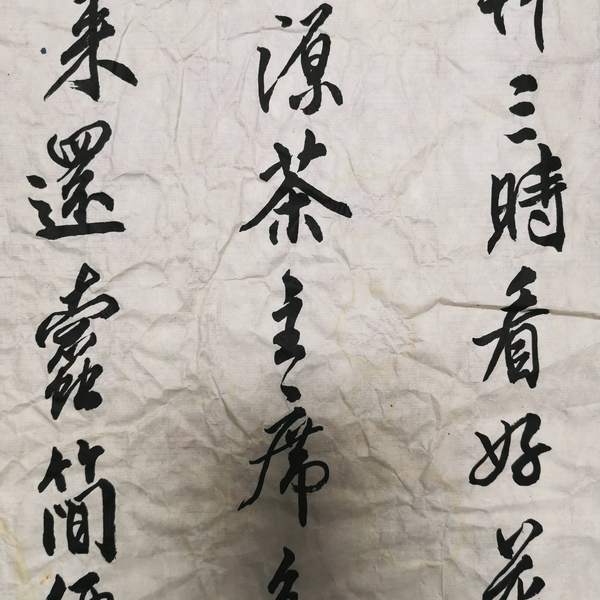 三時看好花
源茶主席
来還蠹簡